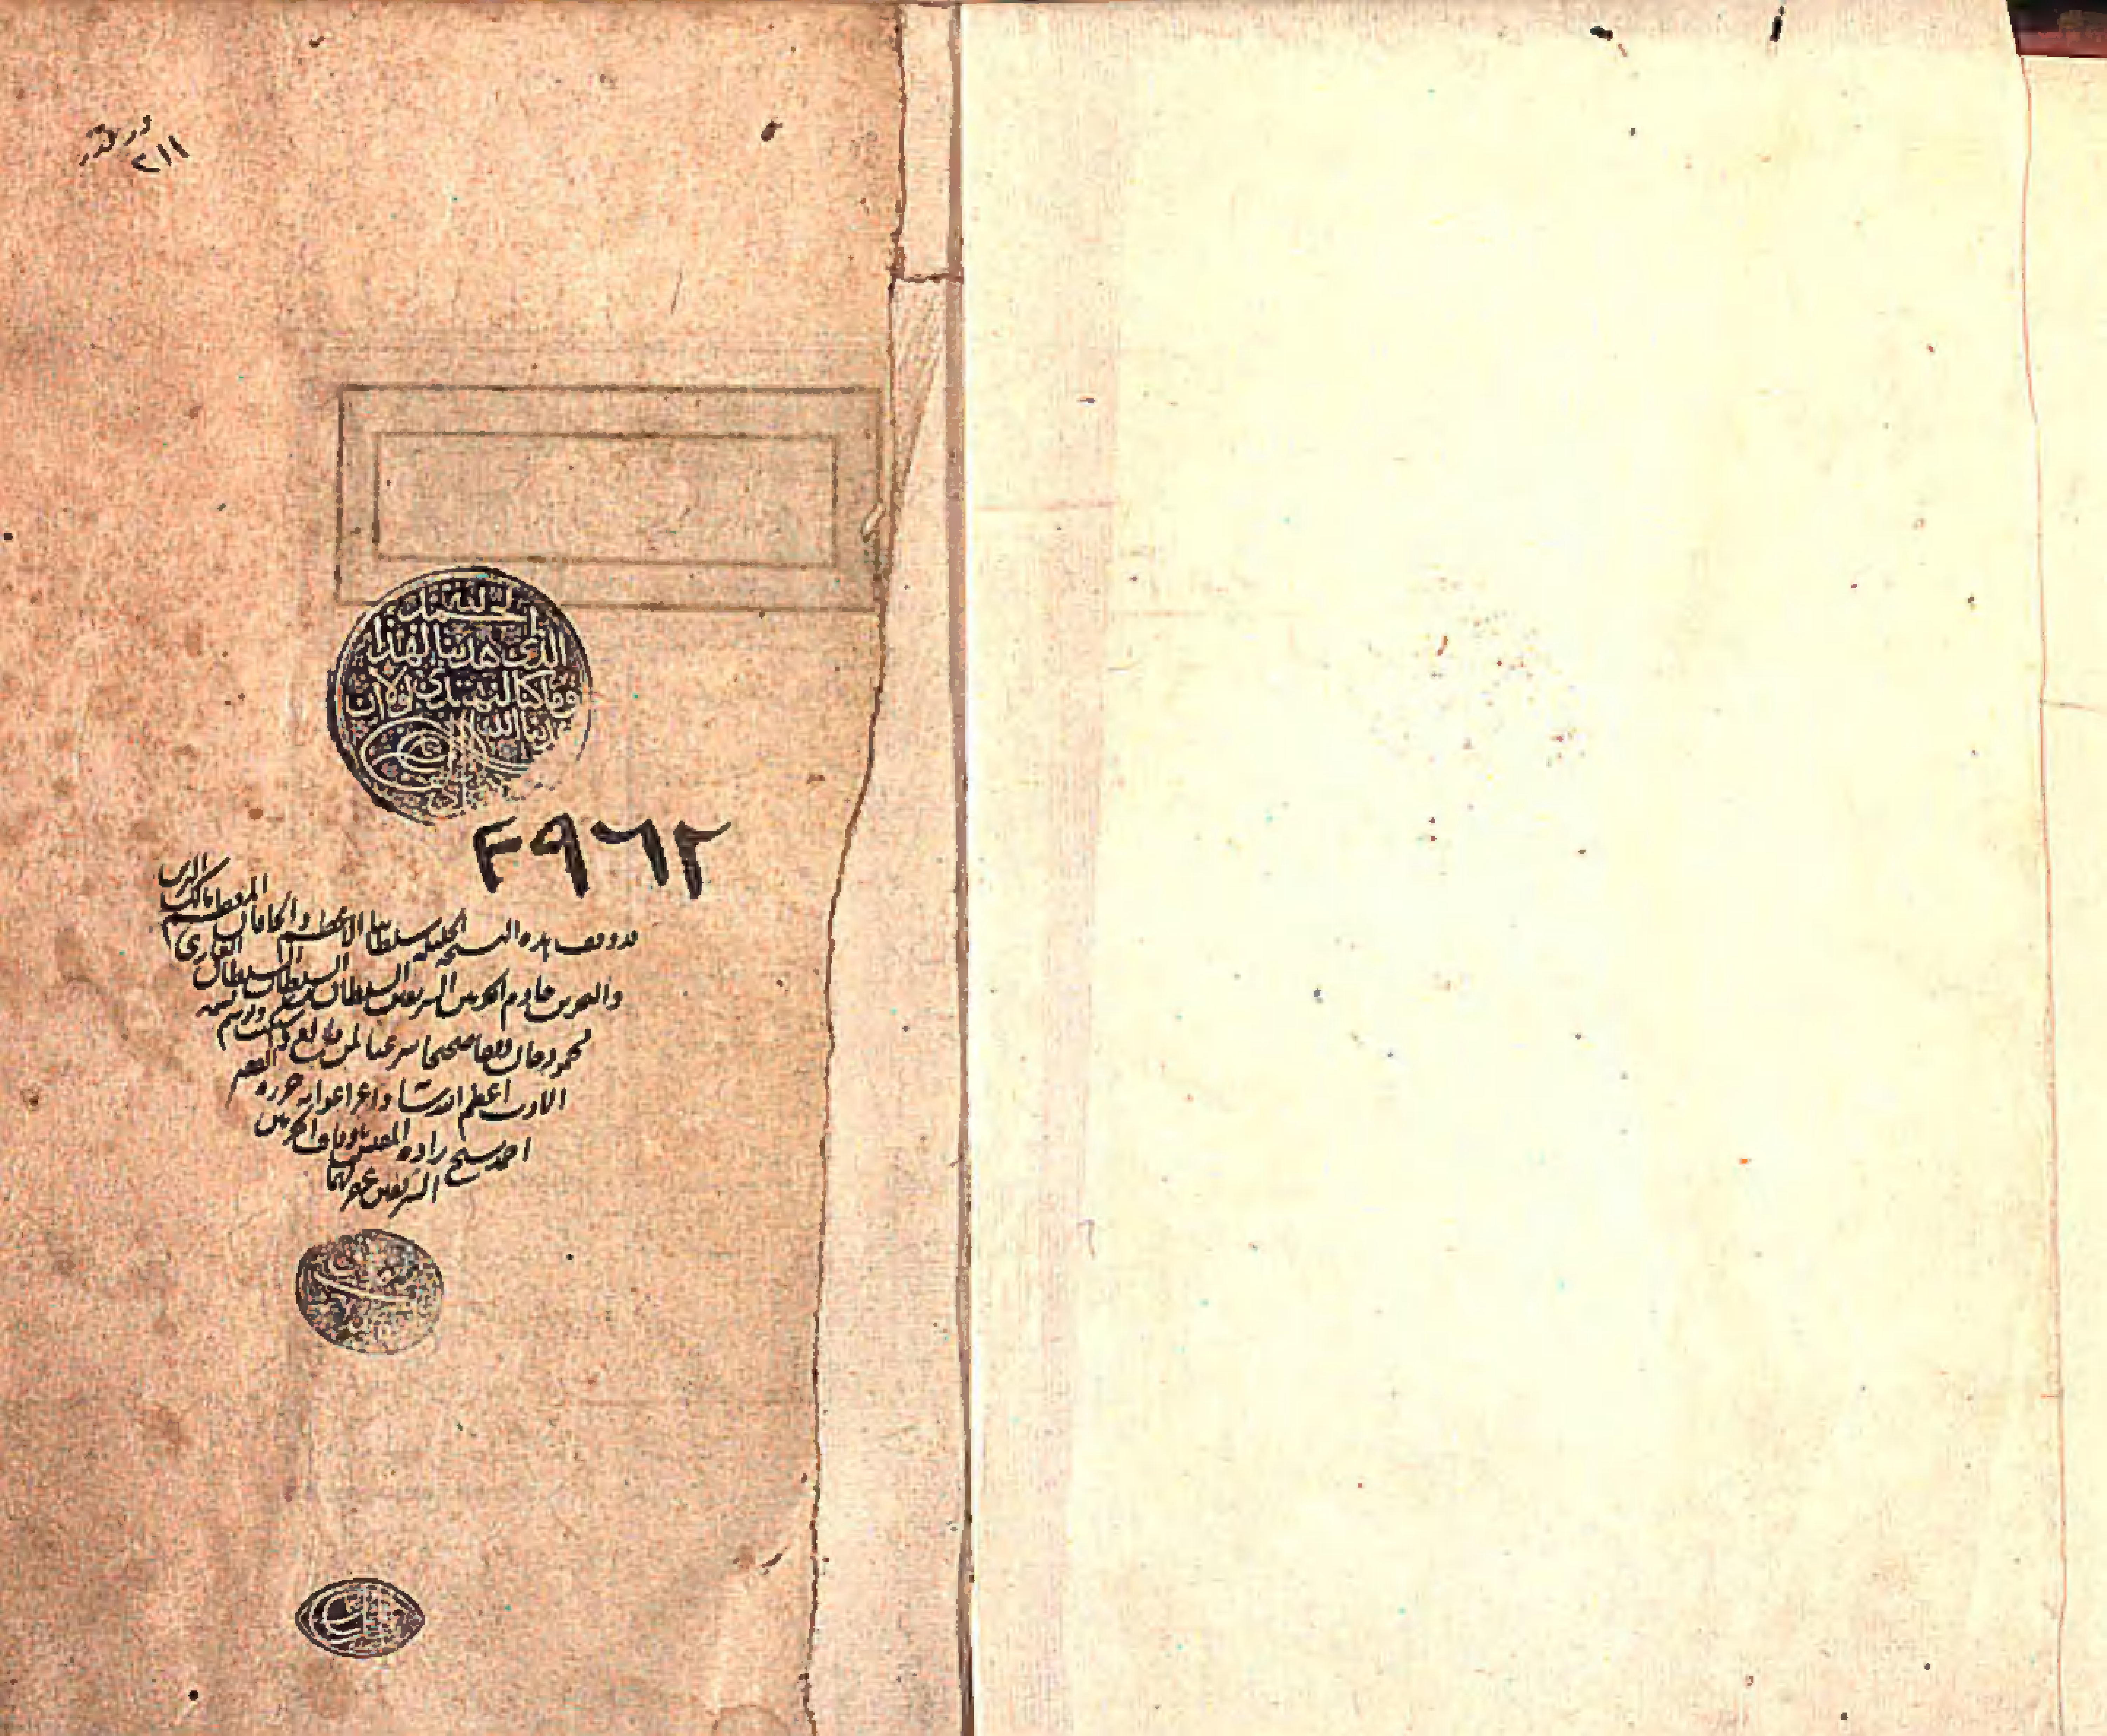 ورقة
٢١١
الحمد لله
الذى هدينا لهذا
وما كنا لنهتدى لولا ان
هدينا الله
٢٩٦٢
قد وقف هذه النسخة الجليلة سلطاننا الاعظم والخاقان المعظم مالك البرين
والبحرين خادم الحرمين الشريفين السلطان بن السلطان السلطان الغازى
محمود خان وقفا صحيحا شرعيا لمن طالع
حرره الفقير
احمد شيخ زاده المفتش باوقاف الحرمين
الشريفين غفر لهما